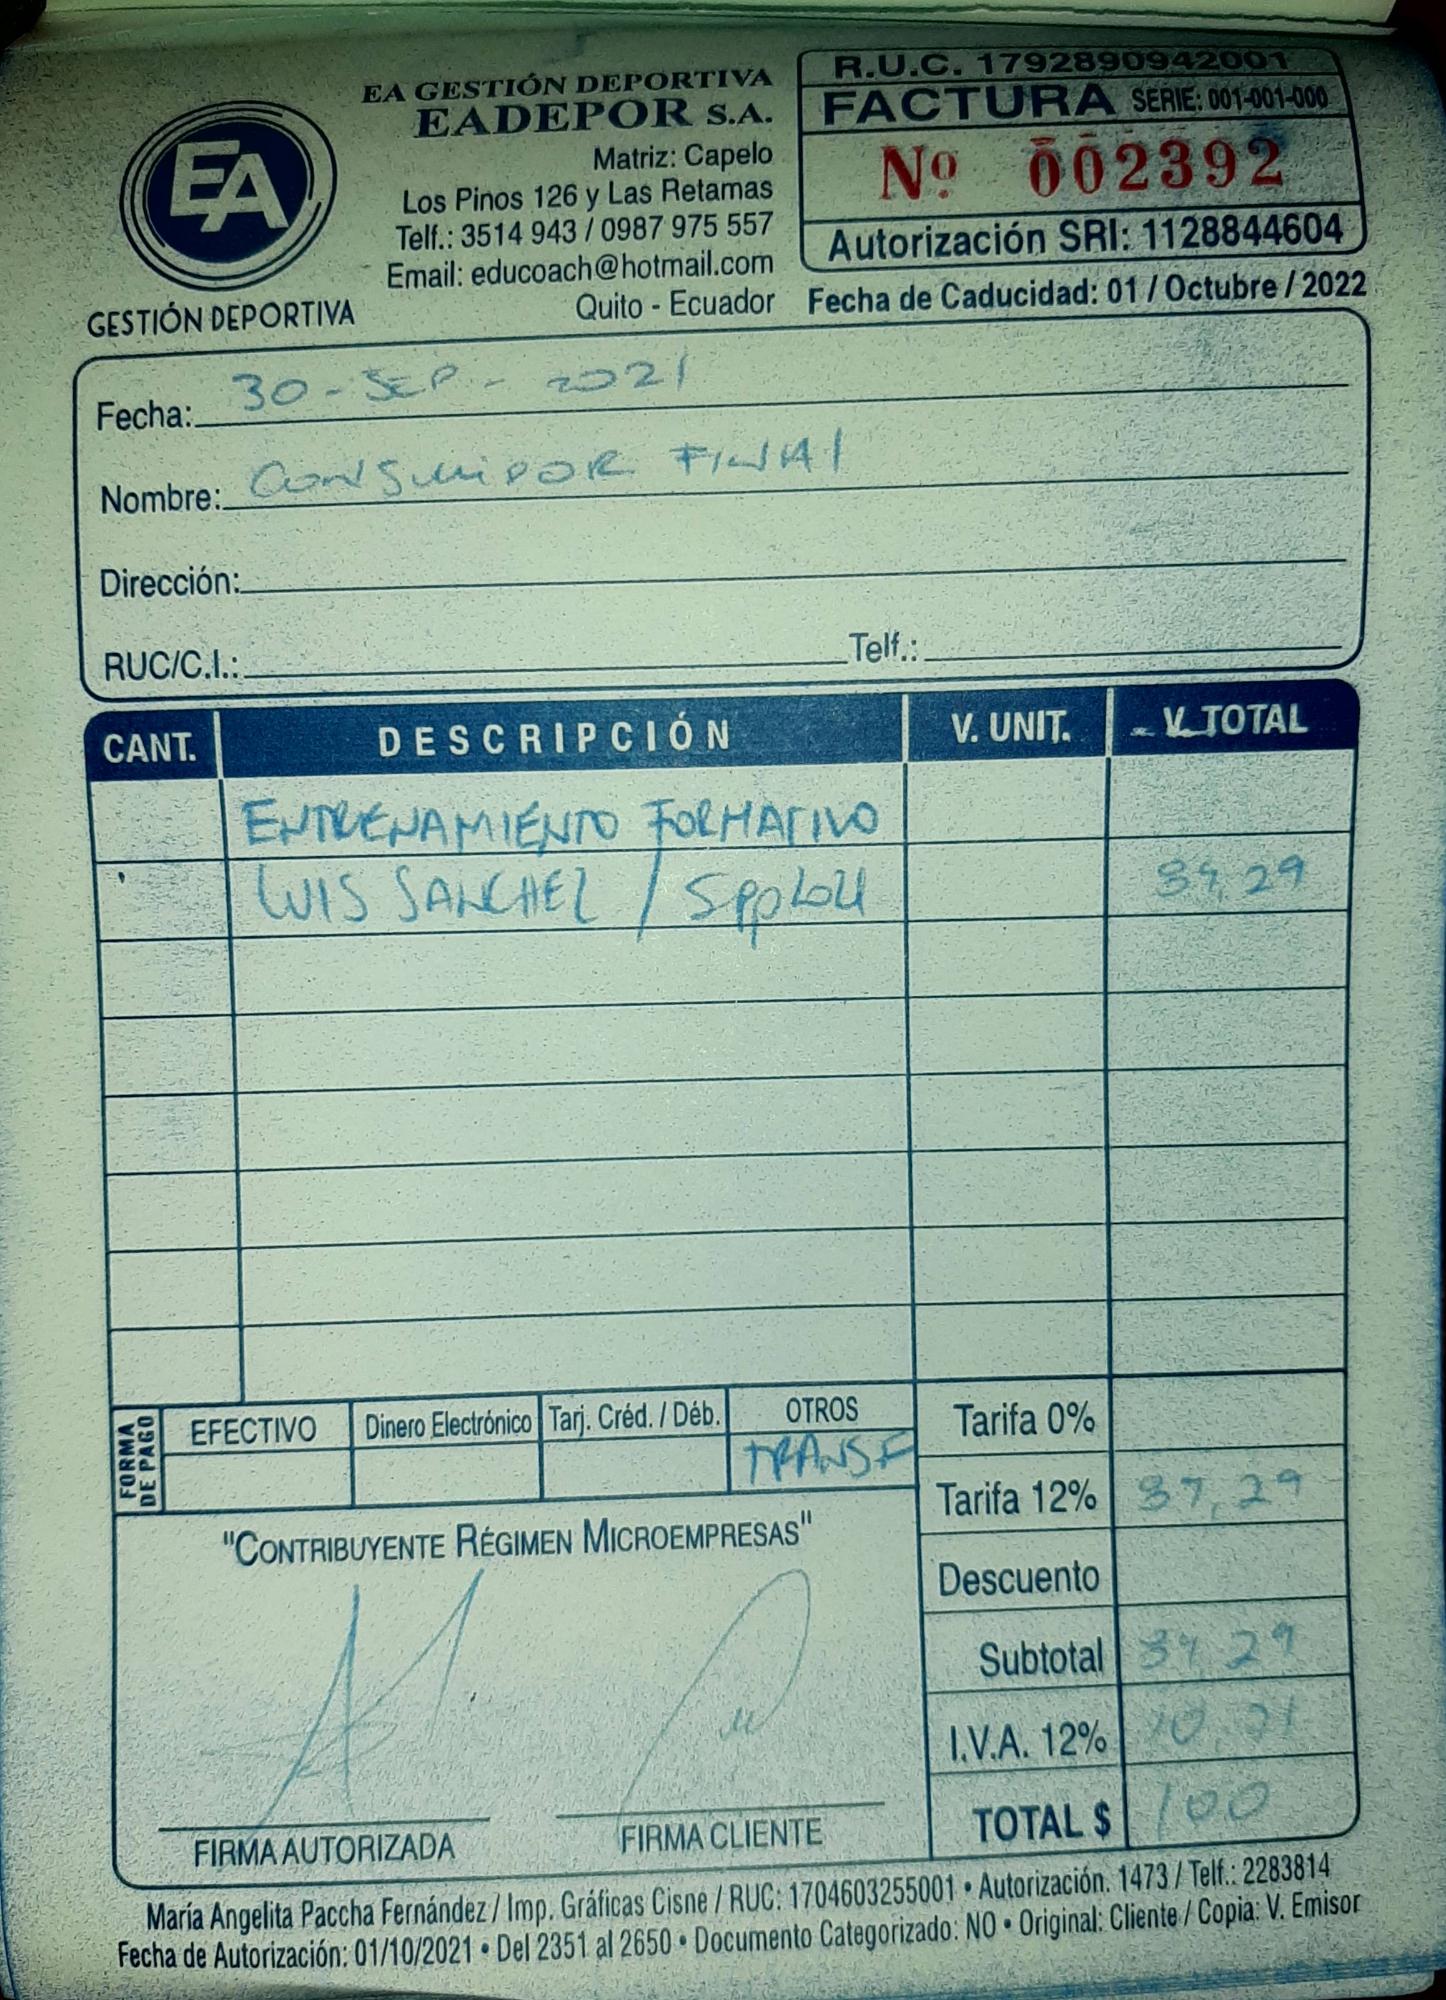 EA GESTIÓN DEPORTIVA
EADEPOR S.A.
Matriz: Capelo
Los Pinos 126 y Las Retamas
Telf.: 3514 943 / 0987 975 557
Email: educoach@hotmail.com
Quito - Ecuador
EA
GESTIÓN DEPORTIVA
R.U.C. 1792890942001
FACTURA SERIE: 001-001-000
Nº 002392
Autorización SRI: 1128844604
Fecha de Caducidad: 01 / Octubre / 2022
Fecha: 30-SEP-2021
Nombre: CONSUMIDOR FINAl
Dirección:
RUC/C.I.: Telf.:
CANT. DESCRIPCIÓN V. UNIT. V. TOTAL
ENTRENAMIENTO FORMATIVO
LUIS SANCHEZ /
EFECTIVO Dinero Electrónico Tarj. Créd. / Déb. OTROS
FORMA DE PAGO
TRANSF
Tarifa 0%
Tarifa 12%
Descuento
Subtotal
I.V.A. 12% 10,71
TOTAL $ 100
"CONTRIBUYENTE RÉGIMEN MICROEMPRESAS"
FIRMA AUTORIZADA FIRMA CLIENTE
María Angelita Paccha Fernández / Imp. Gráficas Cisne / RUC: 1704603255001 • Autorización. 1473 / Telf.: 2283814
Fecha de Autorización: 01/10/2021 • Del 2351 al 2650 • Documento Categorizado: NO • Original: Cliente / Copia: V. Emisor